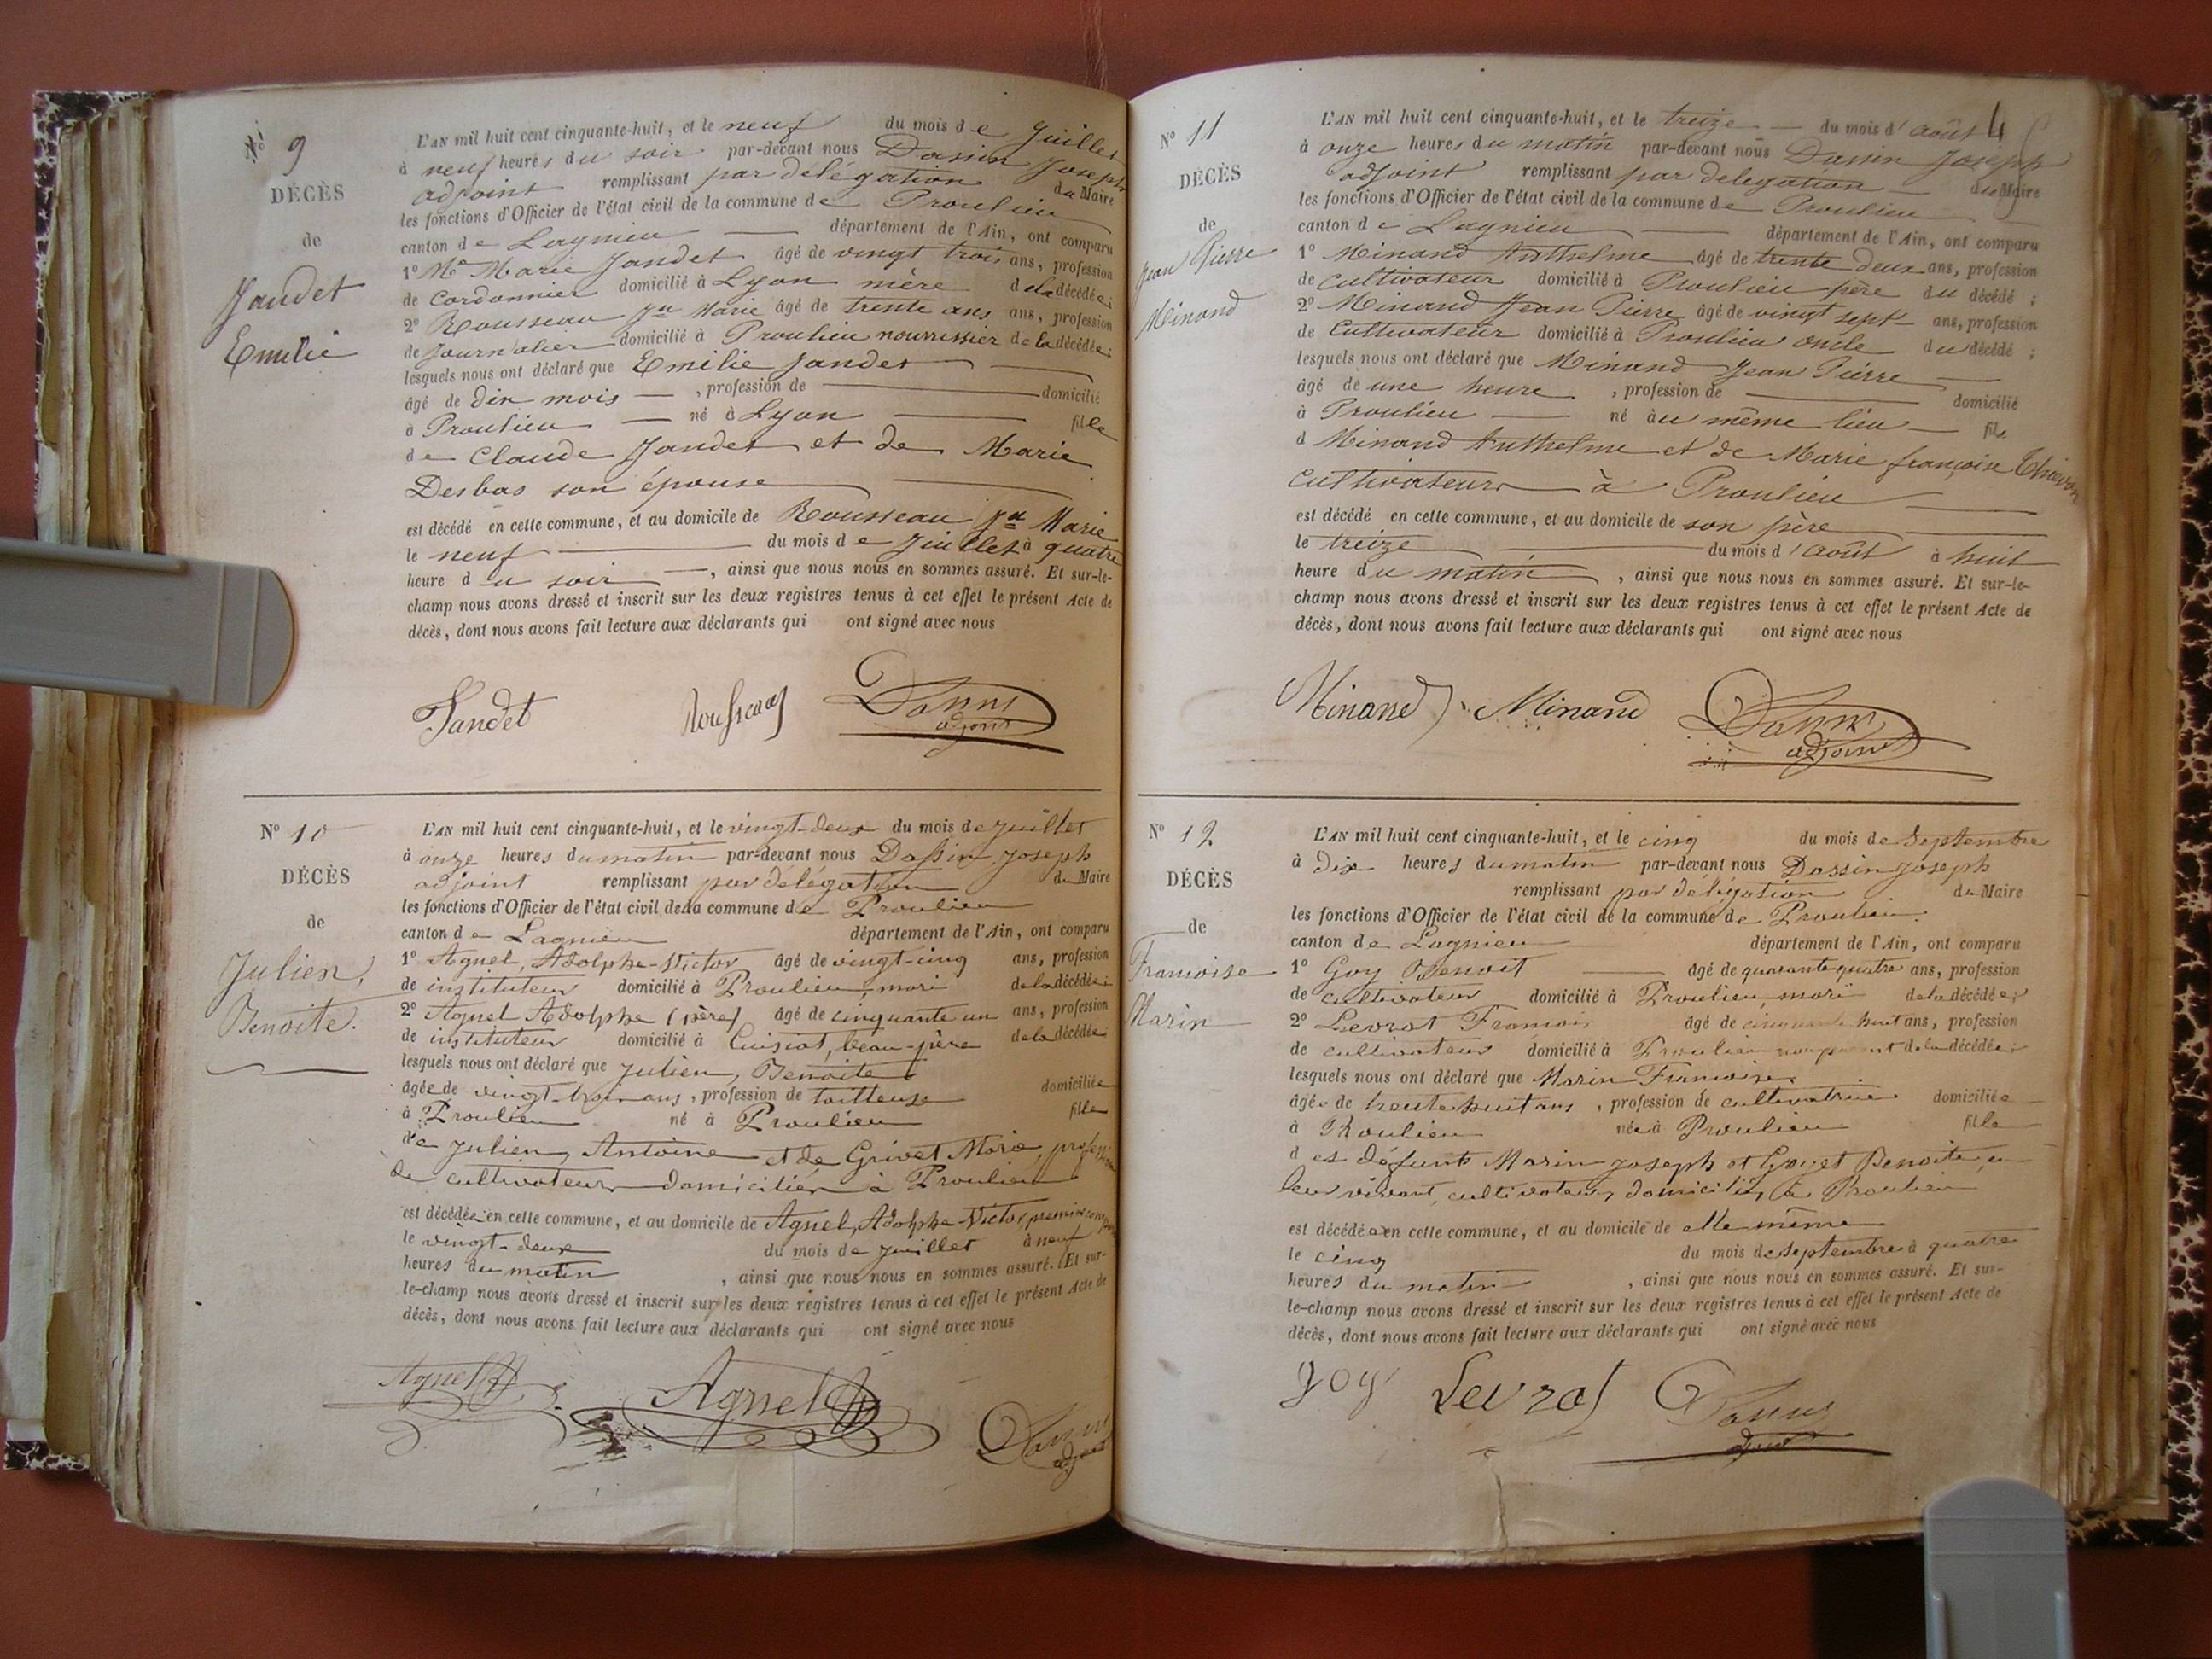 Nº 9
DÉCÈS
de
Jandet
Emelie
L'AN mil huit cent cinquante-huit, et le neuf du mois de Juillet
à neuf heures du soir par-devant nous Dassin Joseph
adjoint remplissant par délégation du Maire
les fonctions d'Officier de l'état civil de la commune de Proulieu
canton de Lagnieu — département de l'Ain, ont comparu
1º Me Marie Jandet âgé de vingt trois ans, profession
de Cordonnier domicilié à Lyon mère de la décédée;
2º Rousseau Jn Marie âgé de trente ans ans, profession
de Journalier domicilié à Proulieu nourrissier de la décédée;
lesquels nous ont déclaré que Emilie Jandet —
âgé de dix mois —, profession de — domicilié
à Proulieu — né à Lyon — fille
de Claude Jandet et de Marie
Desbas son épouse —
est décédé en cette commune, et au domicile de Rousseau Jn Marie
le neuf — du mois de Juillet à quatre
heure du soir —, ainsi que nous nous en sommes assuré. Et sur-le-
champ nous avons dressé et inscrit sur les deux registres tenus à cet effet le présent Acte de
décès, dont nous avons fait lecture aux déclarants qui ont signé avec nous
Jandet Rousseau Dassin
adjoint
Nº 10
DÉCÈS
de
Julien,
Benoite.
L'AN mil huit cent cinquante-huit, et le vingt-deux du mois de juillet
à onze heures du matin par-devant nous Dassin Joseph
adjoint remplissant par délégation du Maire
les fonctions d'Officier de l'état civil de la commune de Proulieu
canton de Lagnieu département de l'Ain, ont comparu
1º Agnel, Adolphe-Victor âgé de vingt-cinq ans, profession
de instituteur domicilié à Proulieu, mari de la décédée;
2º Agnel Adolphe (père) âgé de cinquante un ans, profession
de instituteur domicilié à Cuisiat, beau-père de la décédée
lesquels nous ont déclaré que Julien, Benoite
âgée de vingt-trois ans, profession de tailleuse domiciliée
à Proulieu né à Proulieu fille
de Julien, Antoine et de Grivet Marie, profession
de cultivateurs domiciliés à Proulieu
est décédée en cette commune, et au domicile de Agnel, Adolphe Victor, premier comparant
le vingt-deux du mois de juillet à neuf
heures du matin, ainsi que nous nous en sommes assuré. Et sur-
le-champ nous avons dressé et inscrit sur les deux registres tenus à cet effet le présent Acte de
décès, dont nous avons fait lecture aux déclarants qui ont signé avec nous
Agnel Agnel Dassin
adjoint
4
Nº 11
DÉCÈS
de
Jean Pierre
Minand
L'AN mil huit cent cinquante-huit, et le treize — du mois d'août
à onze heures du matin par-devant nous Dassin Joseph
adjoint remplissant par delegation — du Maire
les fonctions d'Officier de l'état civil de la commune de Proulieu
canton de Lagnieu — département de l'Ain, ont comparu
1º Minand Anthelme âgé de trente deux ans, profession
de cultivateur domicilié à Proulieu père du décédé;
2º Minand Jean Pierre âgé de vingt sept ans, profession
de Cultivateur domicilié à Proulieu oncle du décédé;
lesquels nous ont déclaré que Minand Jean Pierre —
âgé de une heure, profession de — domicilié
à Proulieu — né au même lieu — fils
d Minand Anthelme et de Marie françoise
Cultivateurs à Proulieu —
est décédé en cette commune, et au domicile de son père —
le treize — du mois d'août à huit
heure du matin —, ainsi que nous nous en sommes assuré. Et sur-le-
champ nous avons dressé et inscrit sur les deux registres tenus à cet effet le présent Acte de
décès, dont nous avons fait lecture aux déclarants qui ont signé avec nous
Minand Minand Dassin
adjoint
Nº 12
DÉCÈS
de
Francoise
Marin
L'AN mil huit cent cinquante-huit, et le cinq du mois de Septembre
à dix heures du matin par-devant nous Dassin Joseph
remplissant par délégation du Maire
les fonctions d'Officier de l'état civil de la commune de Proulieu.
canton de Lagnieu département de l'Ain, ont comparu
1º Goy Benoit — âgé de quarante-quatre ans, profession
de cultivateur domicilié à Proulieu, mari de la décédée;
2º Levrat Francois âgé de cinquante huit ans, profession
de cultivateur domicilié à Proulieu non parent de la décédée;
lesquels nous ont déclaré que Marin Francoise
âgée de trente huit ans, profession de cultivatrice domiciliée
à Proulieu née à Proulieu fille
des défunts Marin Joseph et Goyet Benoite en
leur vivant, cultivateurs domiciliés à Proulieu
est décédée en cette commune, et au domicile de elle même
le cinq du mois de septembre à quatre
heures du matin, ainsi que nous nous en sommes assuré. Et sur-
le-champ nous avons dressé et inscrit sur les deux registres tenus à cet effet le présent Acte de
décès, dont nous avons fait lecture aux déclarants qui ont signé avec nous
goy Levrat Dassin
adjoint